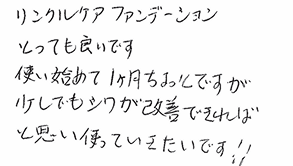 リンクルケア ファンデーション
とっても良いです
使い始めて1ヶ月ちょっとですが
少しでもシワが改善できれば
と思い使っていきたいです!!